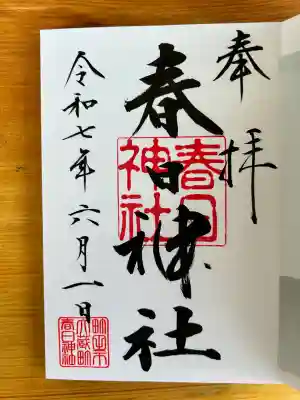 奉拝
春日神社
春日
神社
令和七年六月一日
春日神社